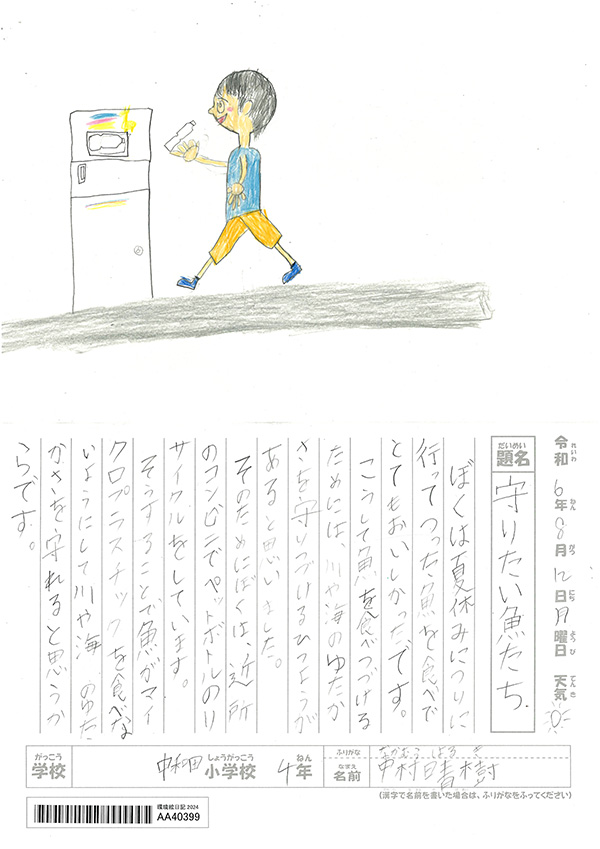 令和れいわ 6年ねん 8月がつ 12日にち 月曜日ようび 天気てんき
題名だいめい 守りたい魚たち
ぼくは夏休みにつりに
行ってつった魚を食べて
とてもおいしかったです。
こうして魚を食べつづける
ためには、川や海のゆたか
さを守りつづけるひつようが
あると思いました。
そのためにぼくは、近所
のコンビニでペットボトルのリ
サイクルをしています。
そうすることで魚がマイ
クロプラスチックを食べな
いようにして川や海のゆた
かさを守れると思うか
らです。
学校がっこう 中和田小学校しょうがっこう 4年ねん
ふりがな なかむら はるき
名前なまえ 中村晴樹
(漢字で名前を書いた場合は、ふりがなをふってください)
環境絵日記 2024
AA40399